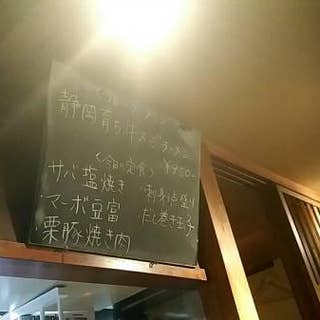 静岡育ち牛すじラーメン
〈今日の定食〉 ¥900-
サバ塩焼き 刺身3点盛り
マーボ豆富 だし巻き玉子
栗豚焼き肉